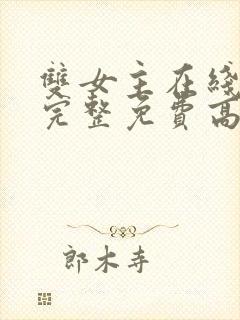 雙女主在綫
完整免費高
郎木寺